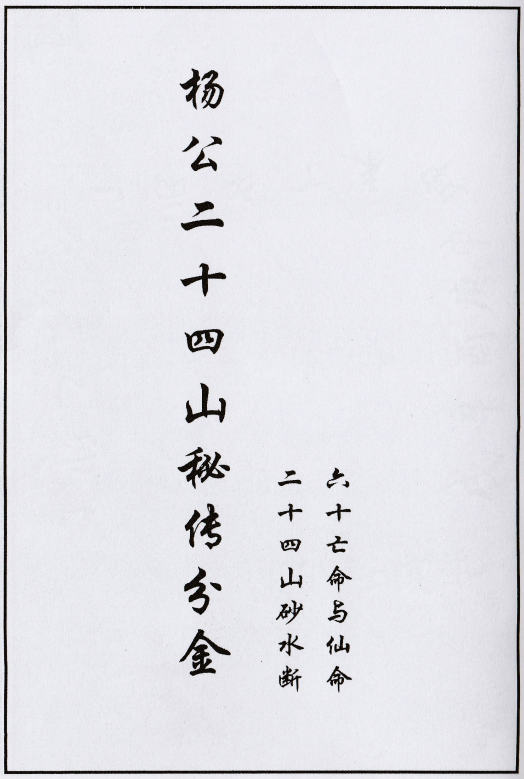 杨公二十四山秘传分金
六十亡命与仙命
二十四山砂水断